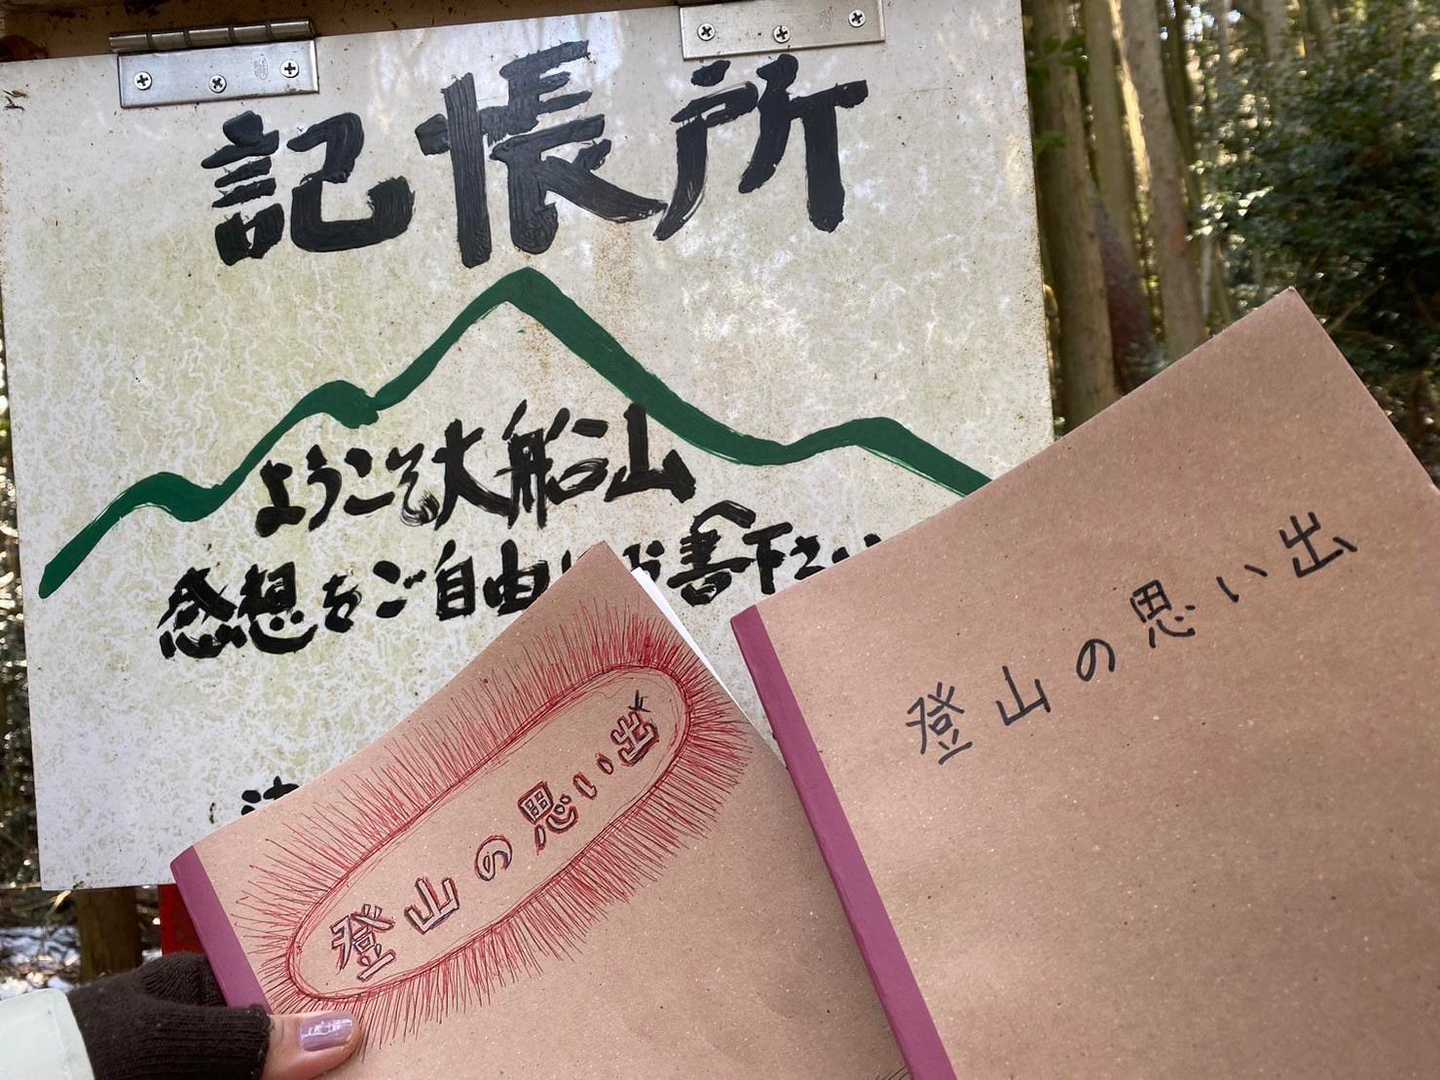 記帳所
ようこそ大船山
感想をご自由にお書下さい
登山の思い出
登山の思い出